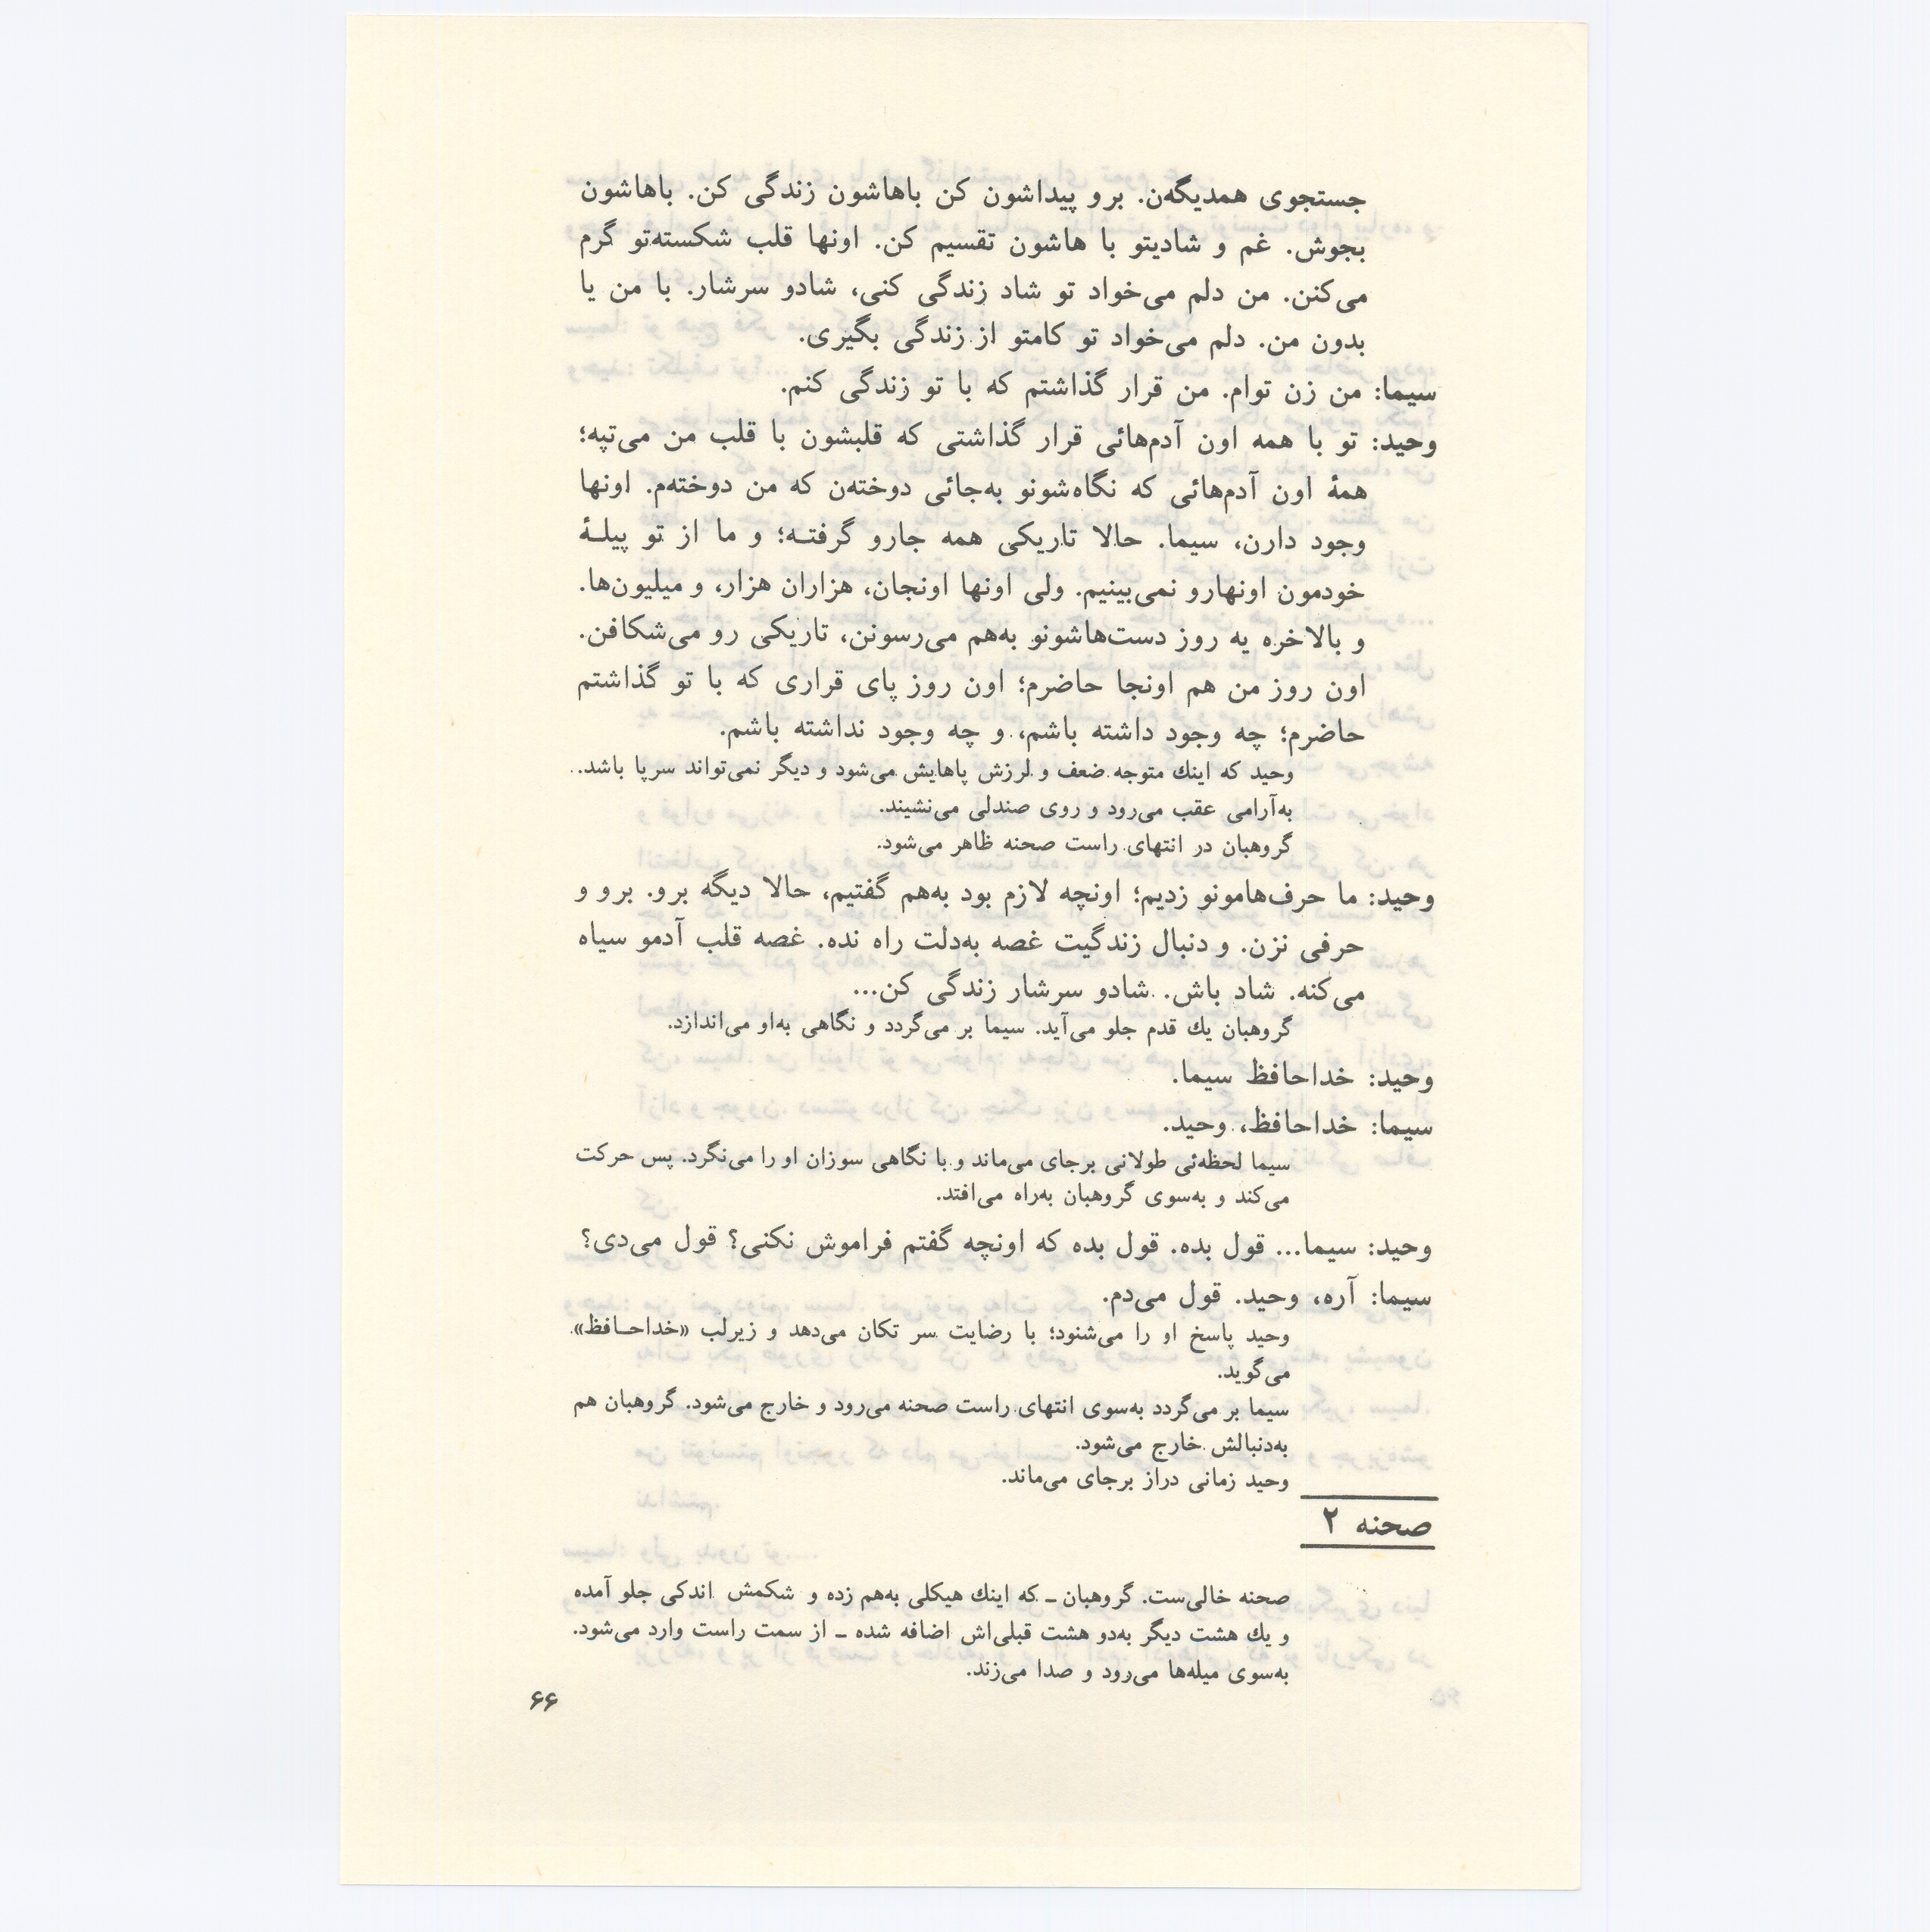 جستجوی همدیگه‌ن. برو پیداشون کن باهاشون زندگی کن. باهاشون
بجوش. غم و شادیتو با هاشون تقسیم کن. اونها قلب شکسته‌تو گرم
می‌کنن. من دلم می‌خواد تو شاد زندگی کنی، شادو سرشار. با من یا
بدون من. دلم می‌خواد تو کامتو از زندگی بگیری.
سیما: من زن توام. من قرار گذاشتم که با تو زندگی کنم.
وحید: تو با همه اون آدم‌هائی قرار گذاشتی که قلبشون با قلب من می‌تپه؛
همهٔ اون آدم‌هائی که نگاه‌شونو به‌جائی دوخته‌ن که من دوخته‌م. اونها
وجود دارن، سیما. حالا تاریکی همه جارو گرفتـه؛ و ما از تو پیلـهٔ
خودمون اونهارو نمی‌بینیم. ولی اونها اونجان، هزاران هزار، و میلیون‌ها.
و بالاخره یه روز دست‌هاشونو به‌هم می‌رسونن، تاریکی رو می‌شکافن.
اون روز من هم اونجا حاضرم؛ اون روز پای قراری که با تو گذاشتم
حاضرم؛ چه وجود داشته باشم، و چه وجود نداشته باشم.
وحید که اینك متوجه ضعف و لرزش پاهایش می‌شود و دیگر نمی‌تواند سرپا باشد.
به‌آرامی عقب می‌رود و روی صندلی می‌نشیند.
گروهبان در انتهای راست صحنه ظاهر می‌شود.
وحید: ما حرف‌هامونو زدیم؛ اونچه لازم بود به‌هم گفتیم، حالا دیگه برو. برو و
حرفی نزن. و دنبال زندگیت غصه به‌دلت راه نده. غصه قلب آدمو سیاه
می‌کنه. شاد باش. شادو سرشار زندگی کن...
گروهبان یك قدم جلو می‌آید. سیما بر می‌گردد و نگاهی به‌او می‌اندازد.
وحید: خداحافظ سیما.
سیما: خداحافظ، وحید.
سیما لحظه‌ئی طولانی برجای می‌ماند و با نگاهی سوزان او را می‌نگرد. پس حرکت
می‌کند و به‌سوی گروهبان به‌راه می‌افتد.
وحید: سیما... قول بده. قول بده که اونچه گفتم فراموش نکنی؟ قول می‌دی؟
سیما: آره، وحید. قول می‌دم.
وحید پاسخ او را می‌شنود؛ با رضایت سر تکان می‌دهد و زیرلب «خداحـافظ»
می‌گوید.
سیما بر می‌گردد به‌سوی انتهای راست صحنه می‌رود و خارج می‌شود. گروهبان هم
به‌دنبالش خارج می‌شود.
وحید زمانی دراز برجای می‌ماند.
صحنه ۲
صحنه خالی‌ست. گروهبان ـ که اینك هیکلی به‌هم زده و شکمش اندکی جلو آمده
و یك هشت دیگر به‌دو هشت قبلی‌اش اضافه شده ـ از سمت راست وارد می‌شود.
به‌سوی میله‌ها می‌رود و صدا می‌زند.
۶۶